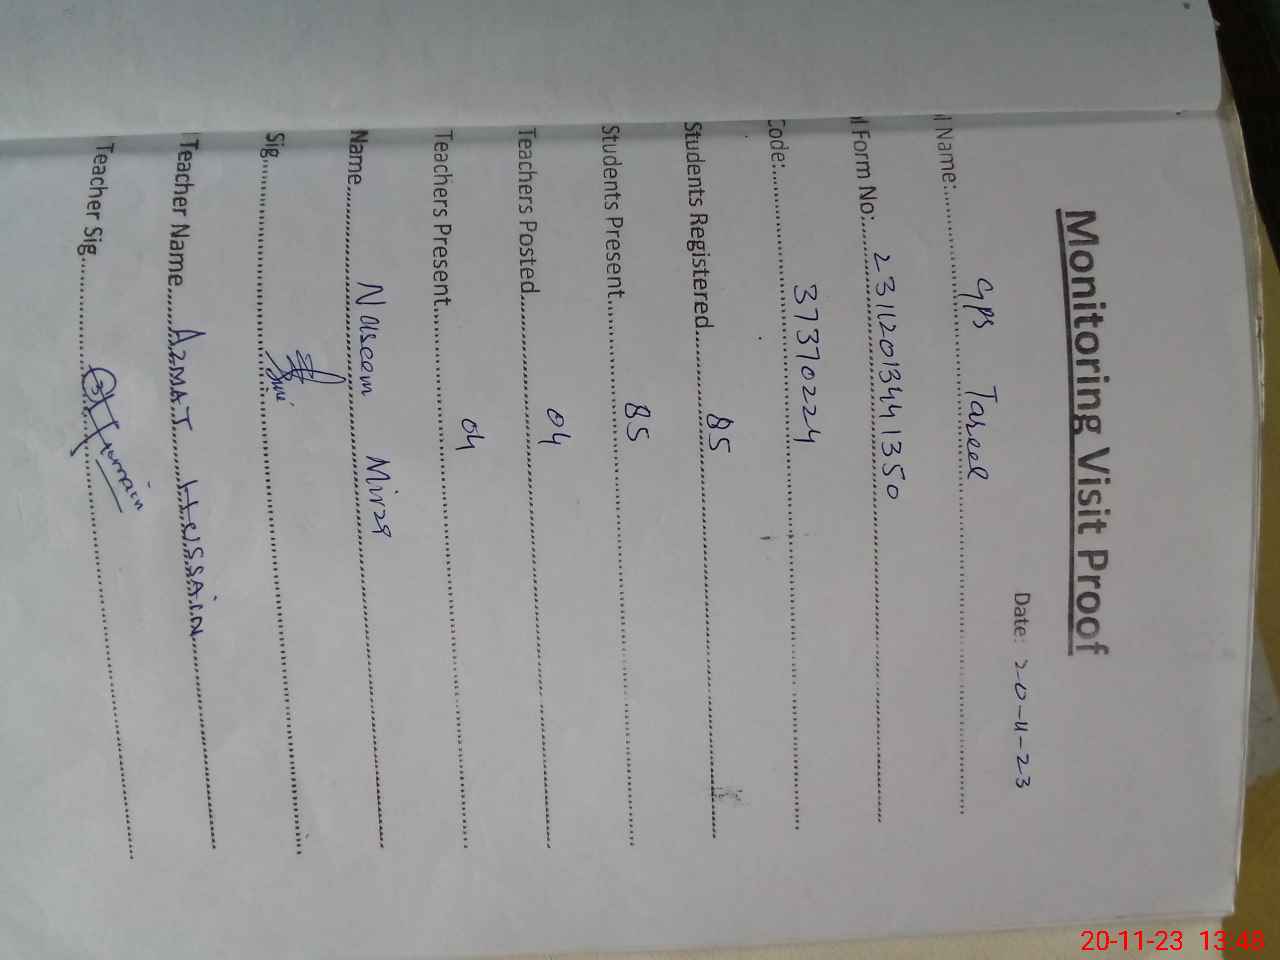 Monitoring Visit Proof
Date: 20-11-23
l Name:........ GPS Tareel
l Form No:........ 23112013441350
Code:........ 37370224
Students Registered........ 85
Students Present........ 85
Teachers Posted........ 04
Teachers Present........ 04
Name........ Naseem Mirza
Sig........
Teacher Name........ AZMAT HUSSAIN
Teacher Sig........ Hussain
20-11-23 13:48